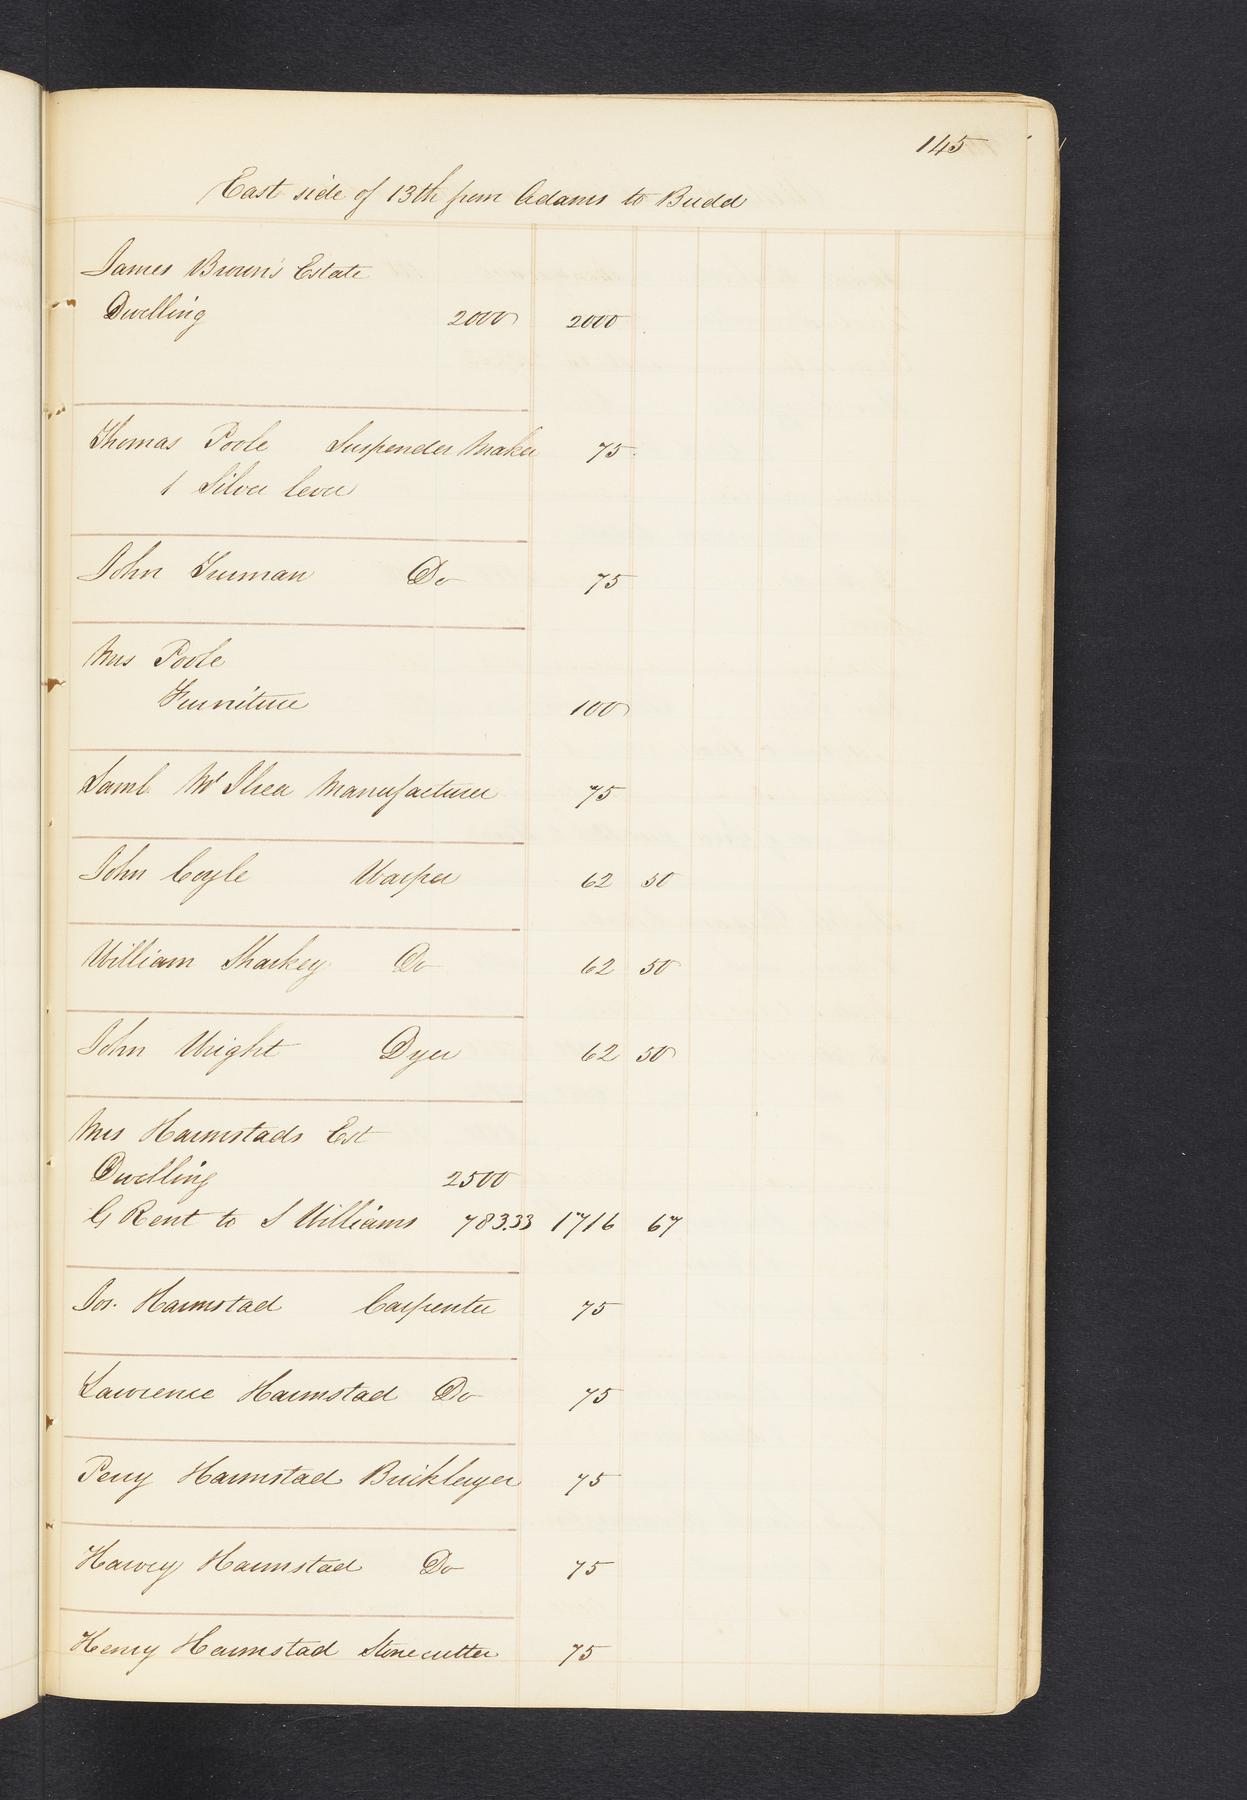 145
East side of 13th from Adams to Budd
James Brown's Estate
Dwelling 2000 2000
Thomas Poole Suspender Maker 75
1 Silver Lever
John Furman Do 75
Mrs Poole
Furniture 100
Saml McShea Manufacturer 75
John Coyle Warper 62 50
William Sharkey Do 62 50
John Wright Dyer 62 50
Mrs Harmstads Est
Dwelling 2500
G Rent to S Williams 783.33 1716 67
Jos. Harmstad Carpenter 75
Lawrence Harmstad Do 75
Perry Harmstad Bricklayer 75
Harvey Harmstad Do 75
Henry Harmstad Stonecutter 75